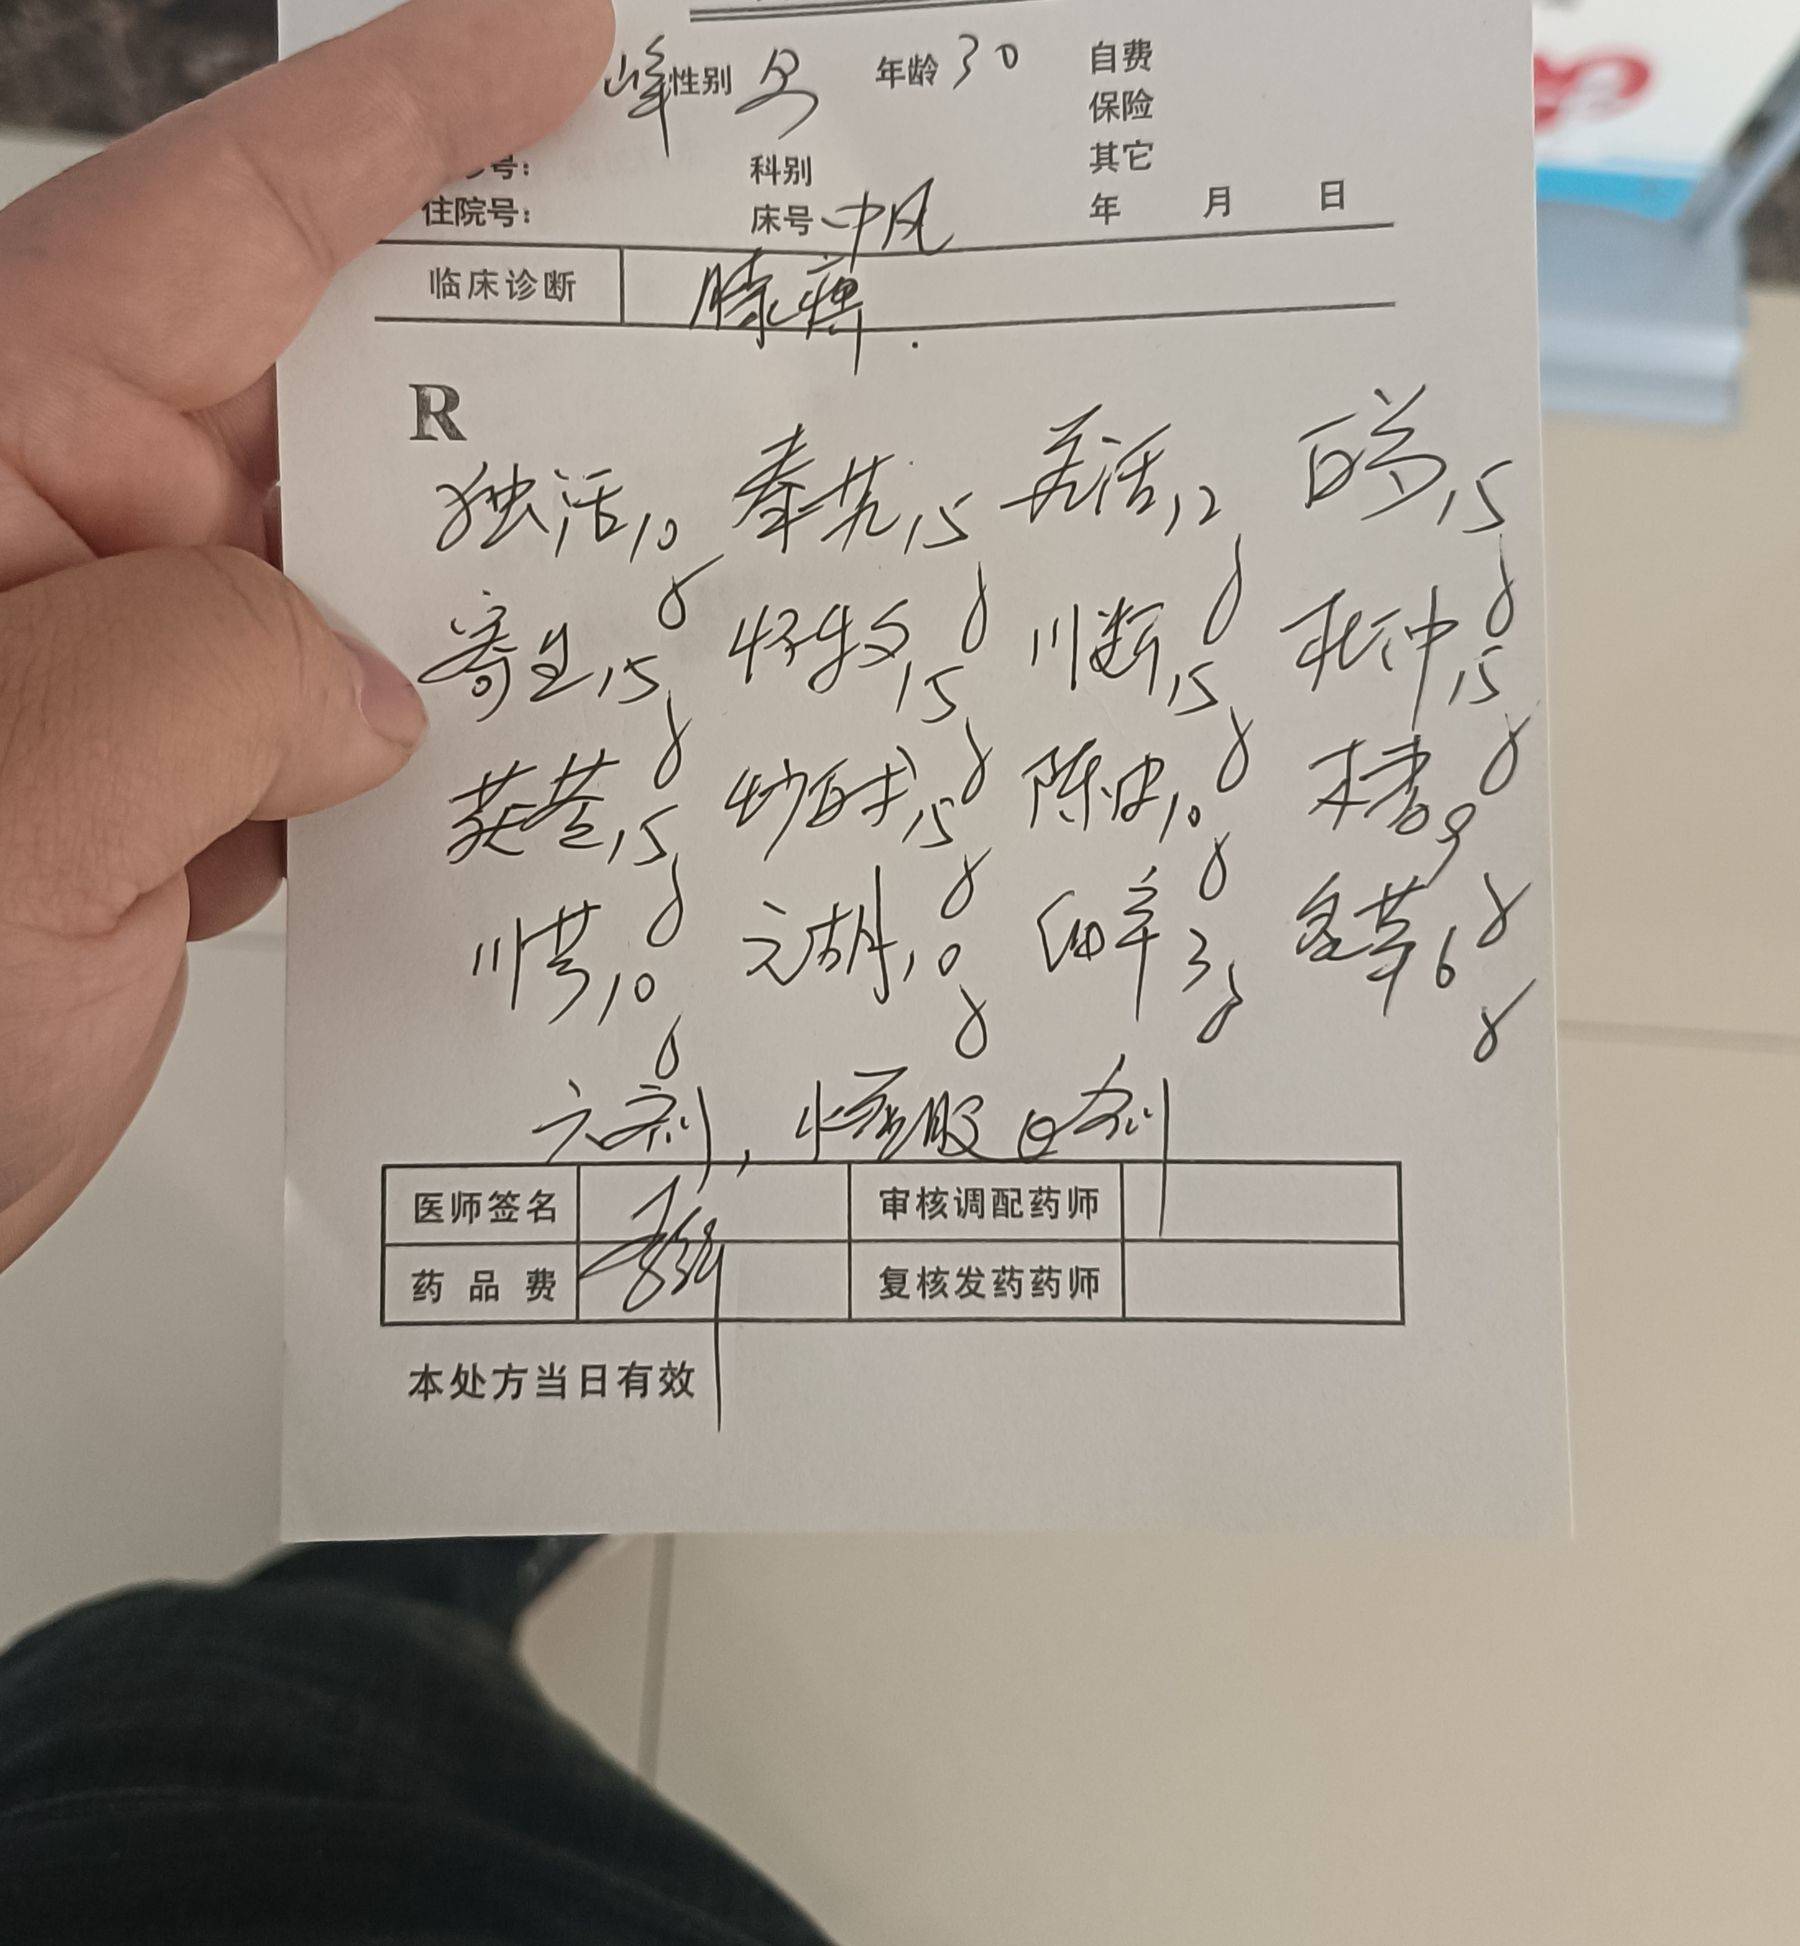 峰 性别 男 年龄 30 自费
保险
号: 科别 其它
住院号: 床号 中风 年 月 日
临床诊断 膝痹.
R
独活10g 秦艽15g 羌活12g 白芍15g
寄生15g 怀牛夕15g 川断15g 杜仲15g
茯苓15g 炒白术15g 陈皮10g 木香9g
川芎10g 元胡10g 细辛3g 炙草6g
六剂, 水煎服 日一剂
医师签名 审核调配药师
药品费 复核发药药师
本处方当日有效